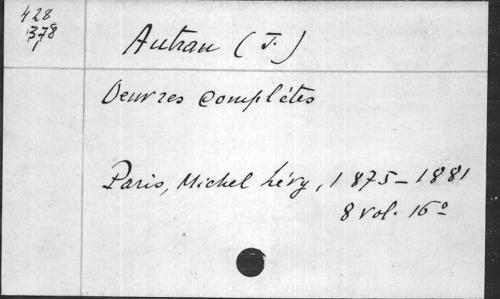 428
378
1
Autran (J.)
Oeuvres complètes
Paris, Michel Lévy, 1875-1881
8 vol. 16º